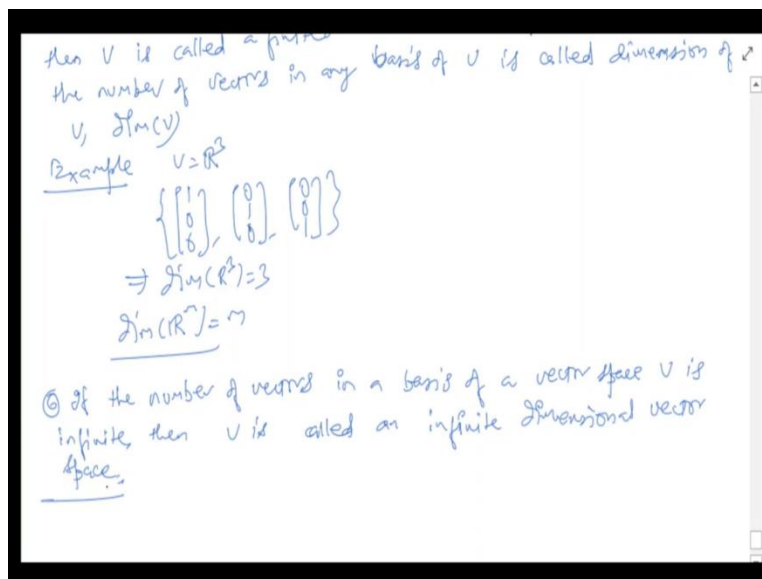 then V is called a
the number of vectors in any basis of V is called dimension of
V, dim(V)
Example V=ℝ³
{[1 0 0], [0 1 0], [0 0 1]}
⇒ dim(ℝ³)=3
dim(ℝⁿ)=n
⑥ If the number of vectors in a basis of a vector space V is
infinite, then V is called an infinite dimensional vector
space.